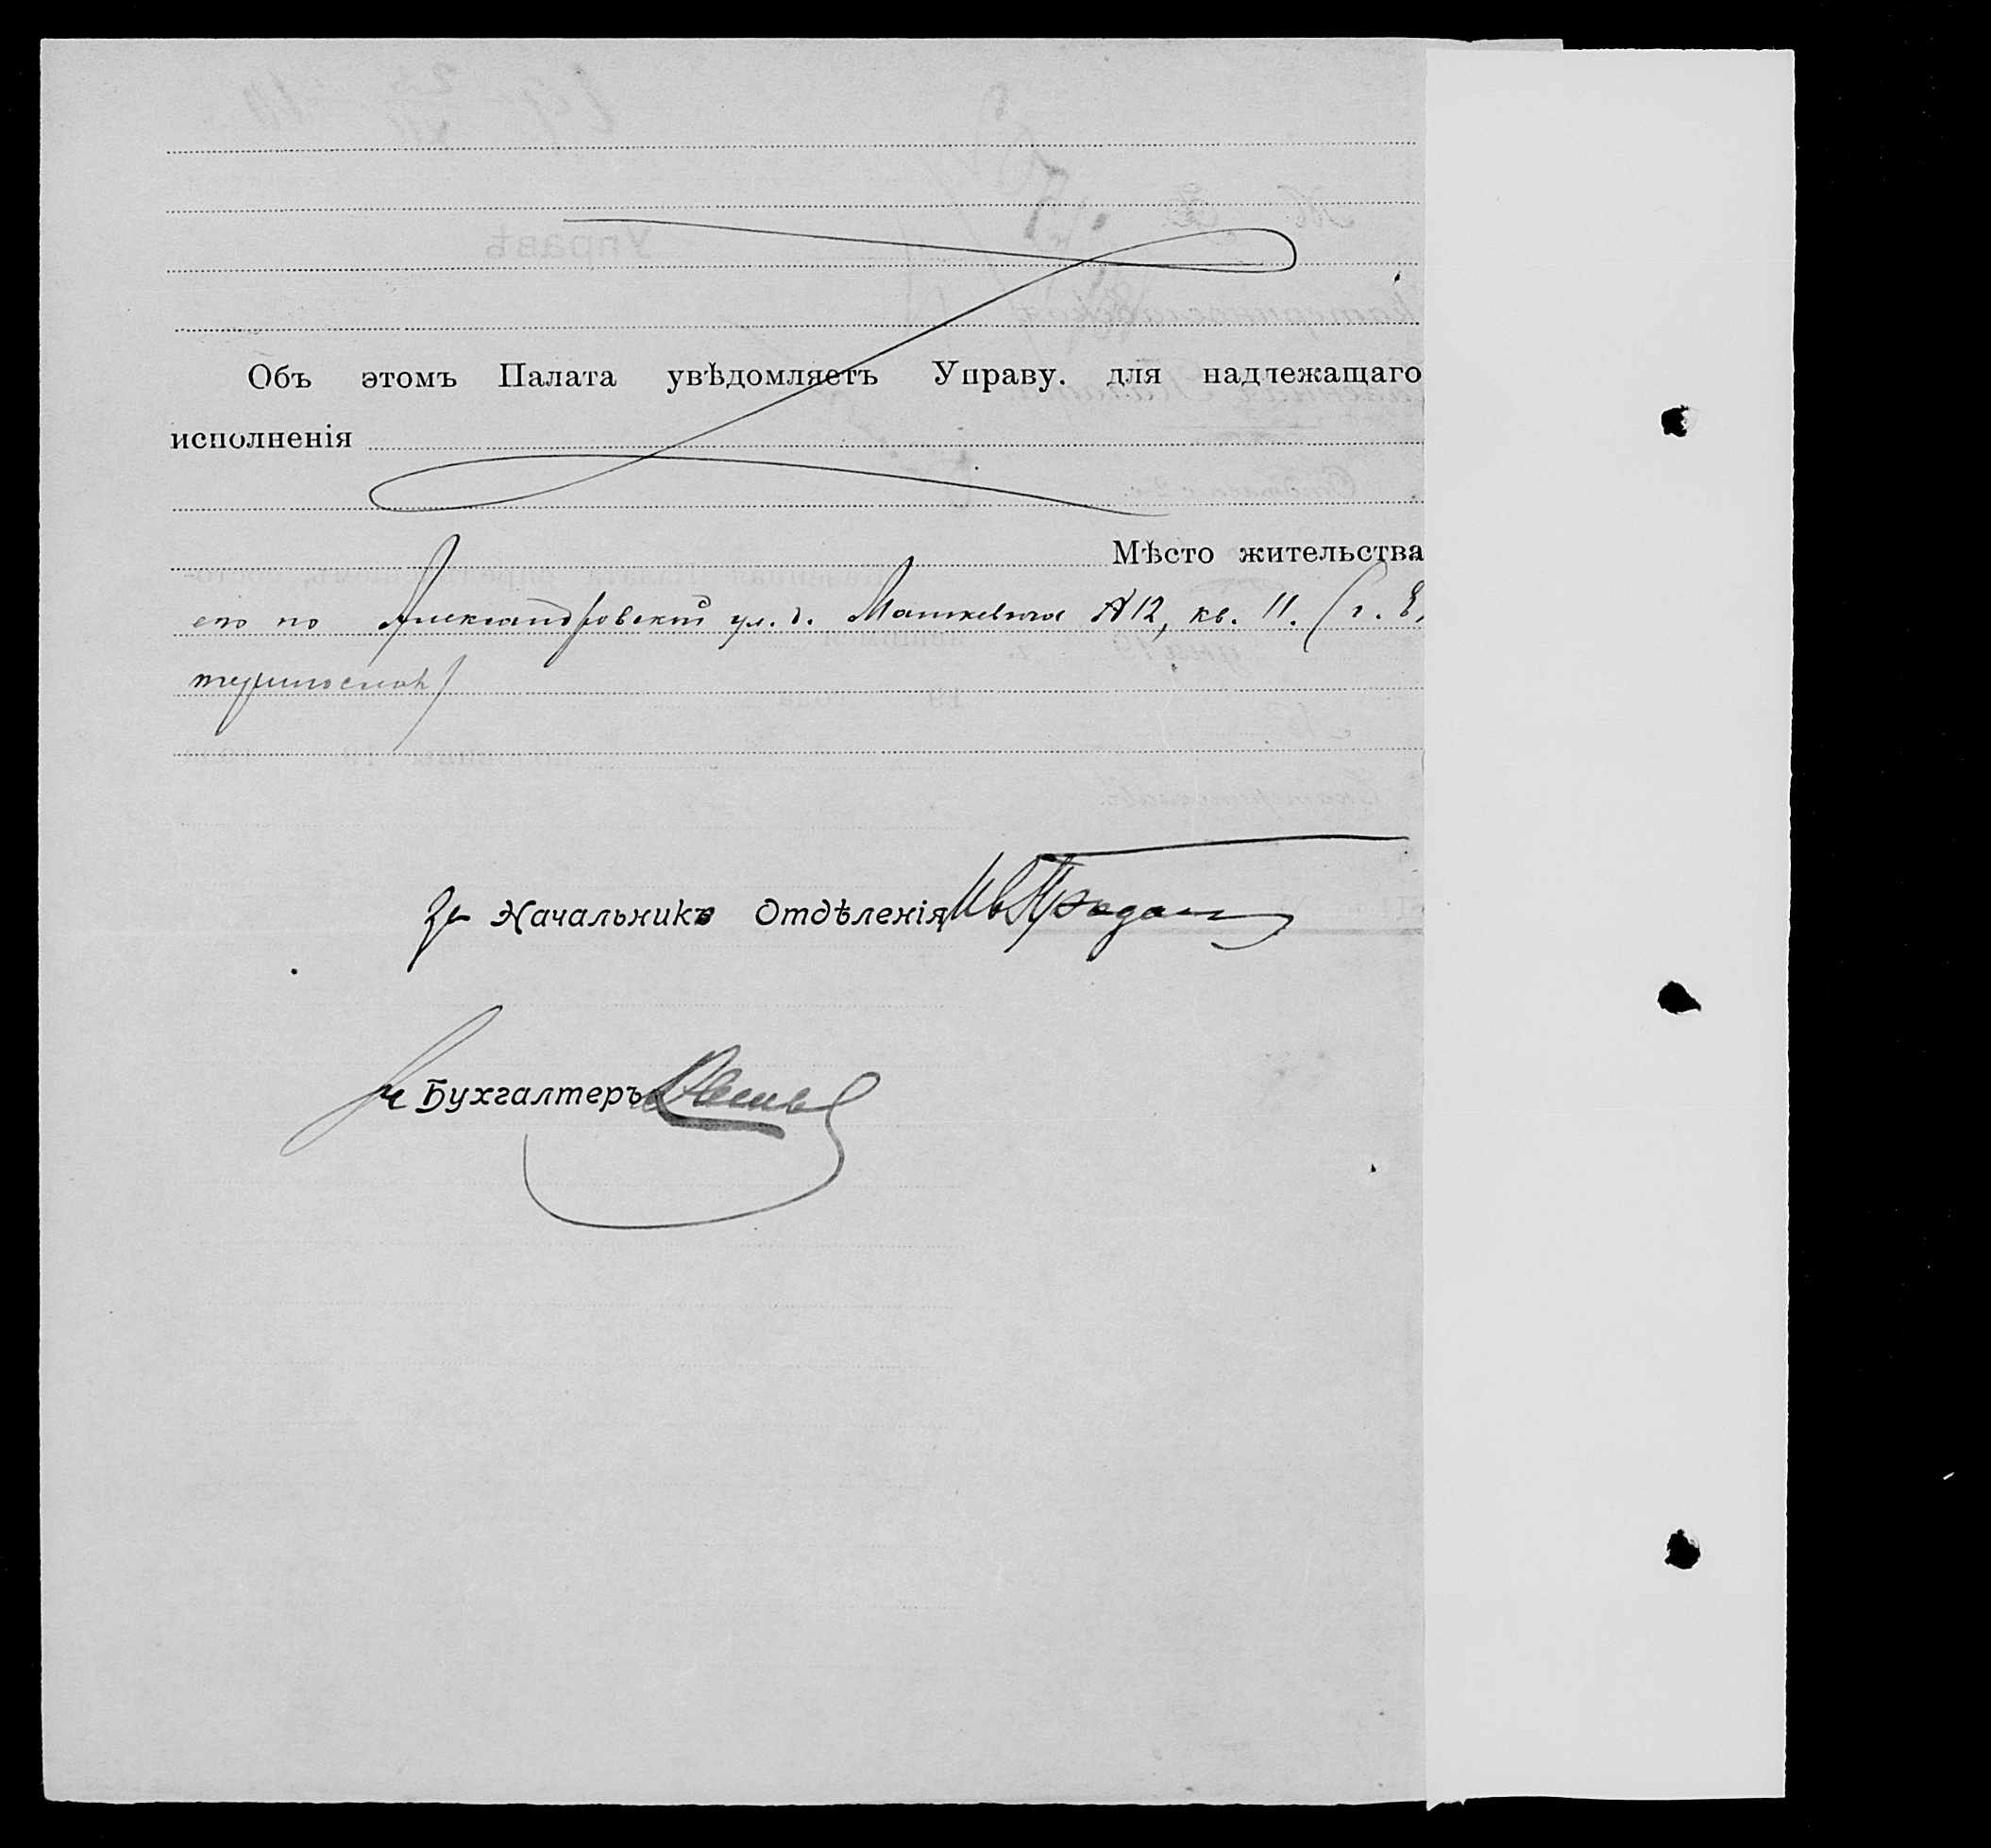 Объ этомъ Палата увѣдомляетъ Управу. для надлежащаго
исполненія
Мѣсто жительства
его по Александровской ул. д. Машкевича № 12, кв. 11. (г. Е
теринославъ)
За Начальника Отдѣленія
Бухгалтеръ